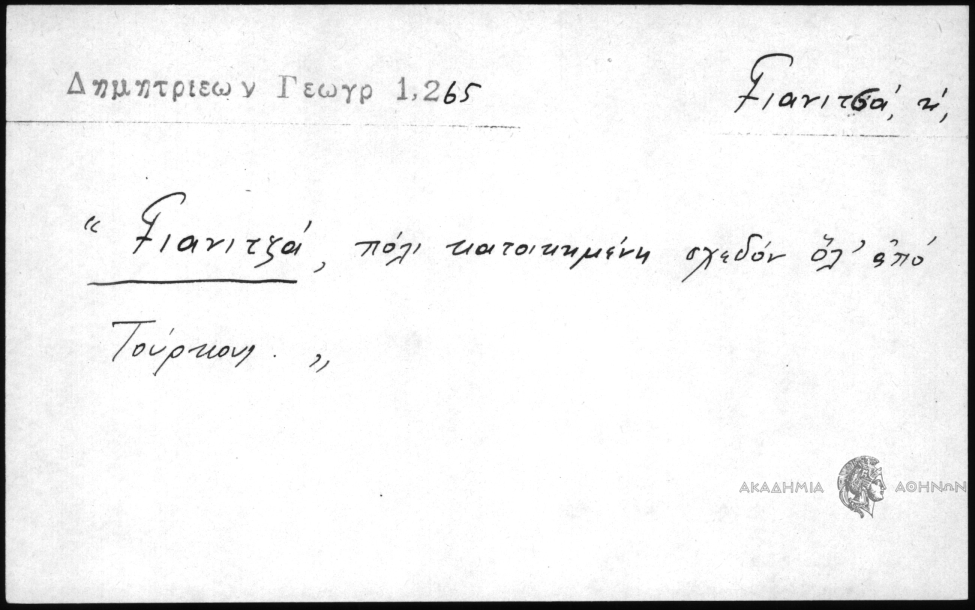 Δημητριεων Γεωγρ 1,265
Γιανιτσά, η,
“ Γιανιτζά, πόλι κατοικημένη σχεδόν ὅλ’ ἀπό
Τούρκους. „
ΑΚΑΔΗΜΙΑ ΑΘΗΝΩΝ